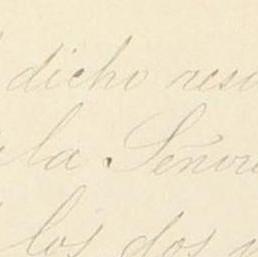 dicho resu
la Señora
los dos